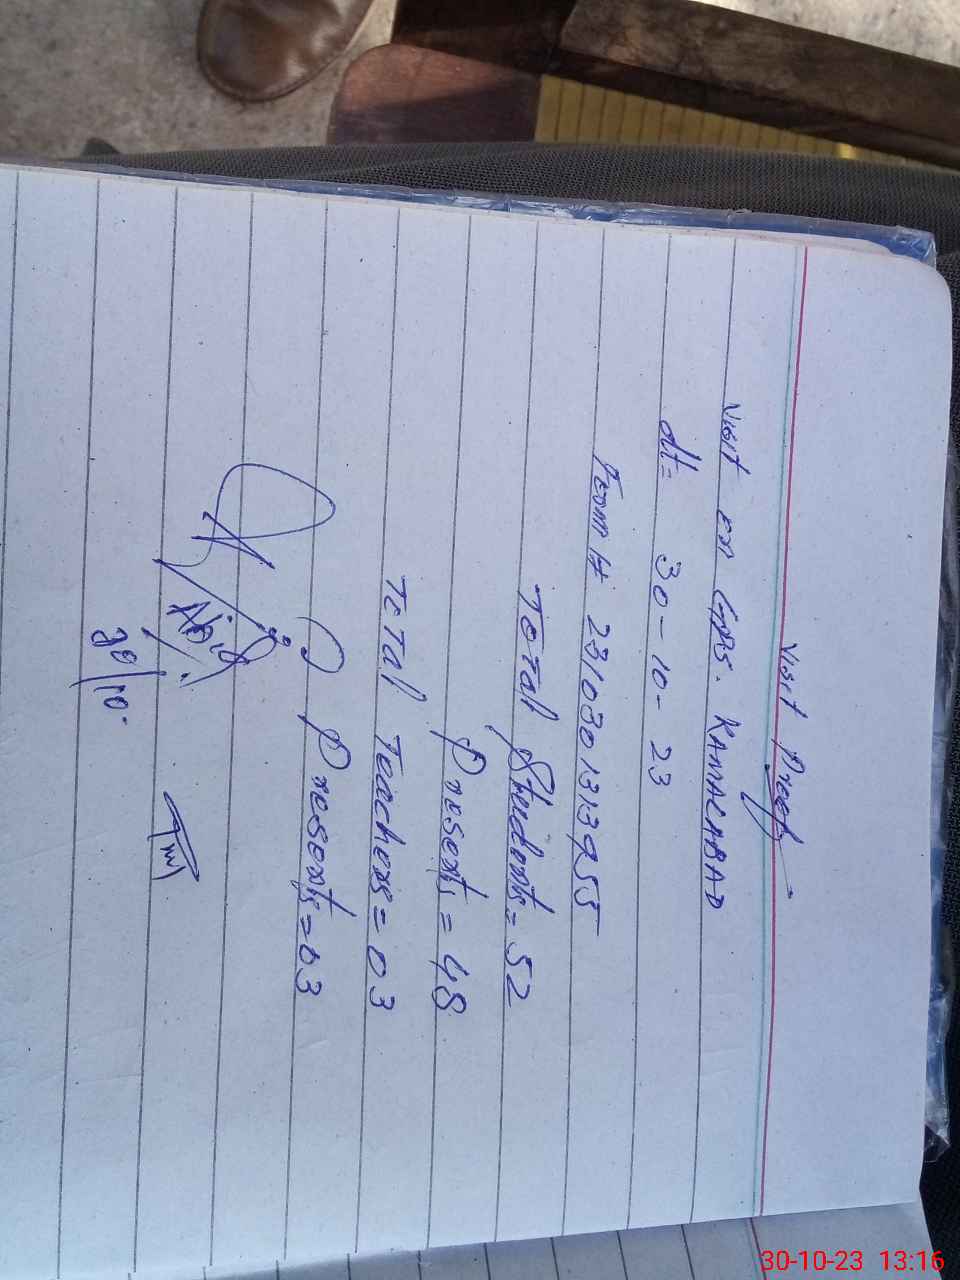 Visit Proof
Visit on GPS. KAMALABAD
dt= 30-10-23
Team # 2310301313955
Total Students = 52
Presents = 48
Total Teachers = 03
Presents = 03
Abid
30/10.
30-10-23 13:16